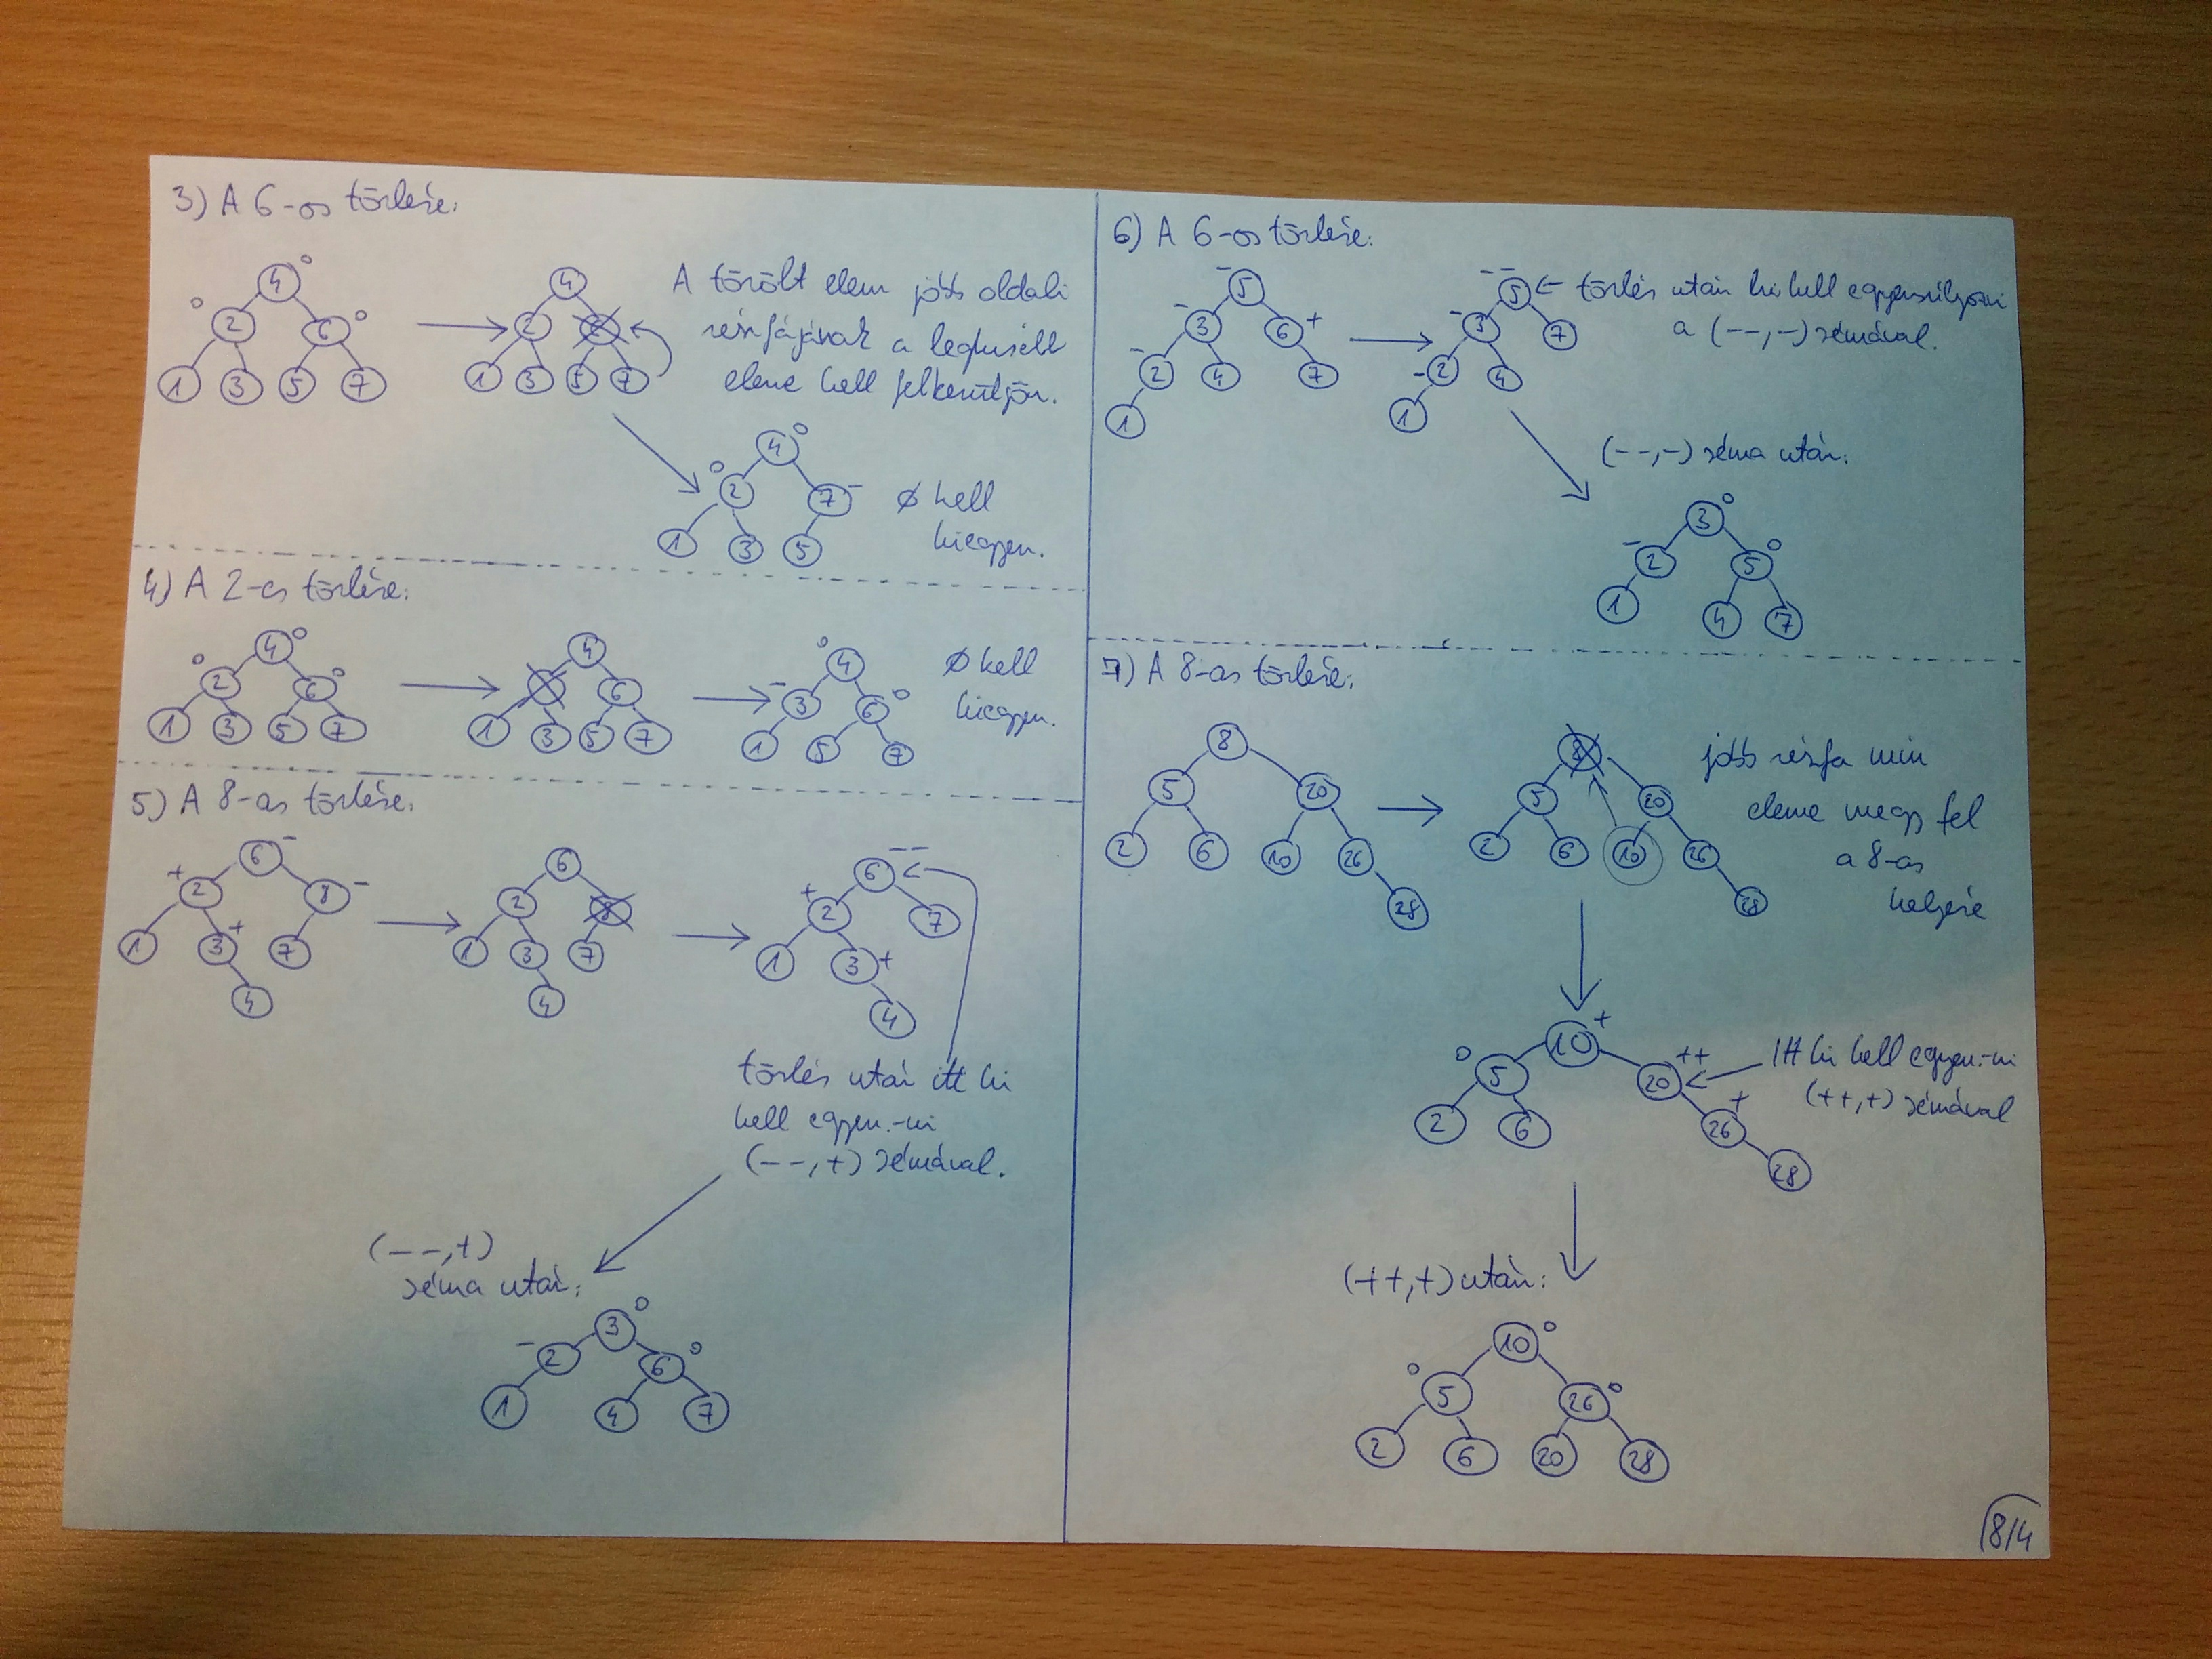 3) A 6-os törlése:
4 °
° 2 6 °
1 3 5 7
4
2 6
1 3 5 7
A törölt elem jobb oldali
részfájának a legkisebb
eleme kell felkerüljön.
4 °
° 2 7 -
1 3 5
∅ kell
kiegyen.
4) A 2-es törlése:
4 °
° 2 6 °
1 3 5 7
4
6
1 3 5 7
° 4
- 3 6 °
1 5 7
∅ kell
kiegyen.
5) A 8-as törlése:
6 -
+ 2 8 -
1 3 + 7
4
6
2 8
1 3 7
4
6 --
+ 2 7
1 3 +
4
törlés után itt ki
kell egyen.-ni
(--,+) sémával.
(--,+)
séma után:
3 °
- 2 6 °
1 4 7
6) A 6-os törlése:
- 5
- 3 6 +
- 2 4 7
1
-- 5
- 3 7
- 2 4
1
törlés után ki kell egyensúlyozni
a (--,-) sémával.
(--,-) séma után:
3 °
- 2 5 °
1 4 7
7) A 8-as törlése:
8
5 20
2 6 10 26
28
8
5 20
2 6 10 26
28
jobb részfa min
eleme megy fel
a 8-as
helyére
10 +
° 5 20 ++
2 6 26 +
28
Itt ki kell egyen.-ni
(++,+) sémával
(++,+) után:
10 °
° 5 26 °
2 6 20 28
8/4